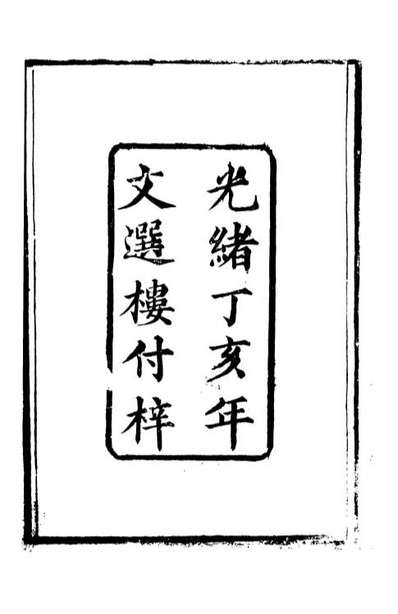 光緒丁亥年
文選樓付梓